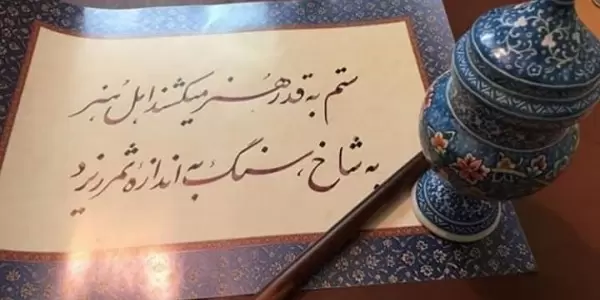 ستم به قدر هنر میکشند اهل هنر
به شاخ، سنگ به اندازهٔ ثمر ریزد